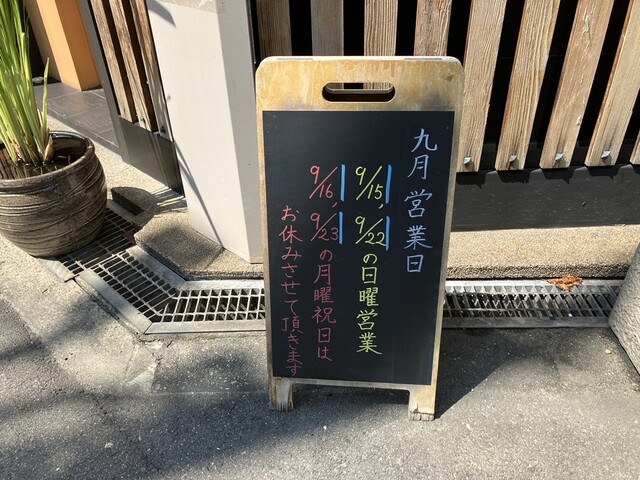 九月営業日
9/15 9/22の日曜営業
9/16、9/23の月曜祝日は
お休みさせて頂きます